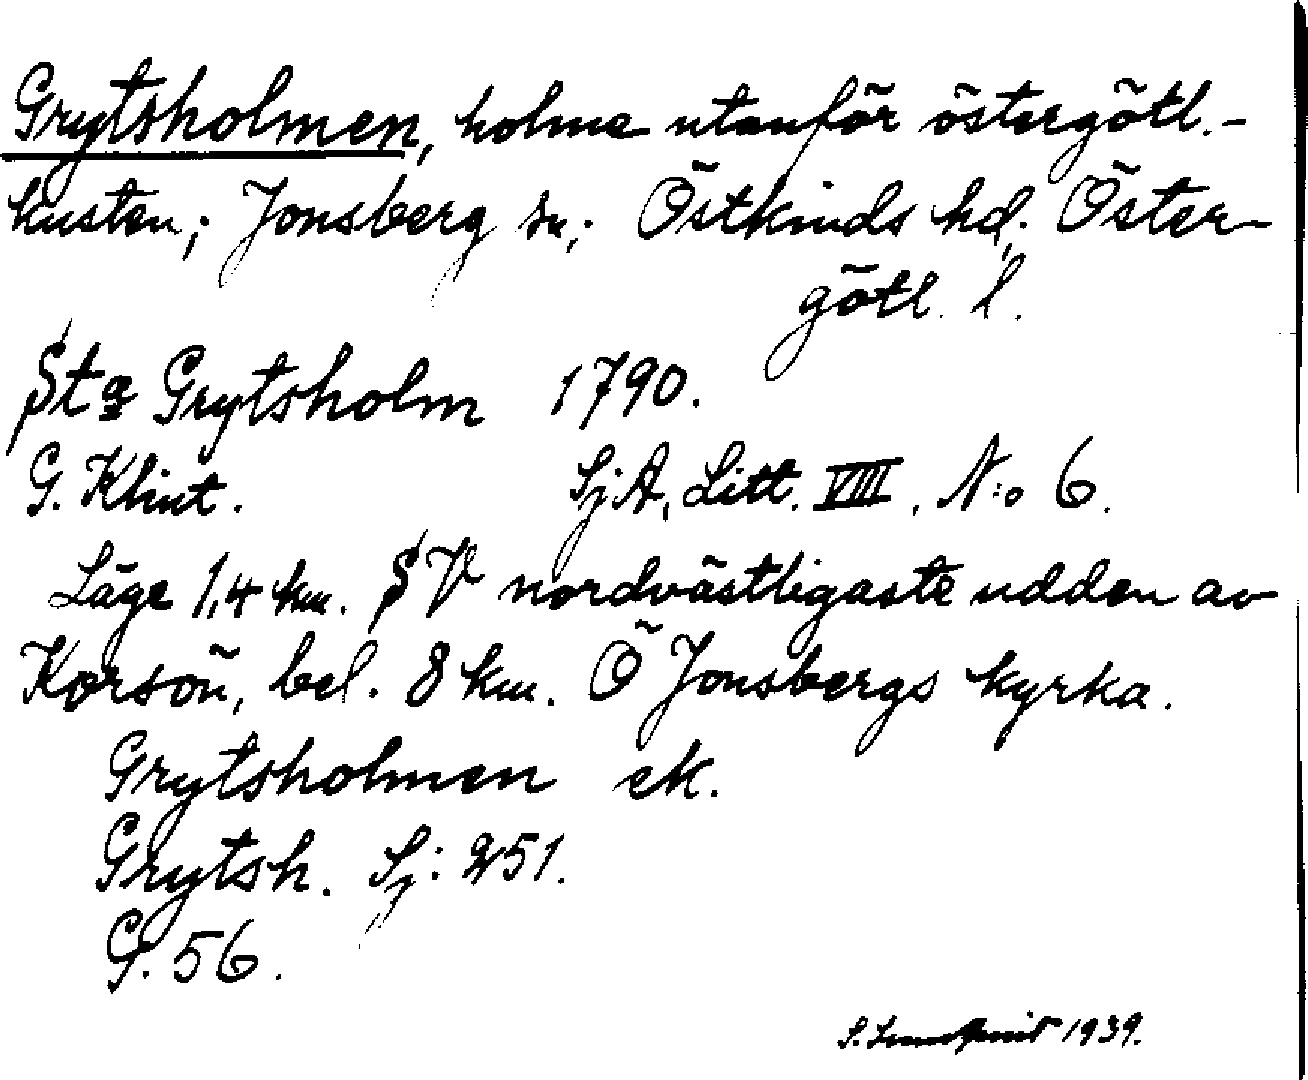 Grytsholmen, holme utanför östergötl.-
kusten; Jonsberg sn; Östkinds hd; Öster-
götl. l.
Sta Grytsholm 1790.
G. Klint. SjA, Litt. VIIII, N:o 6.
Läge 1,4 km. SV nordvästligaste udden av
Korsön, bel. 8 km. Ö Jonsbergs kyrka.
Grytsholmen ek.
Grytsh. Sj: 251.
G. 56.
S. Lundqvist 1939.